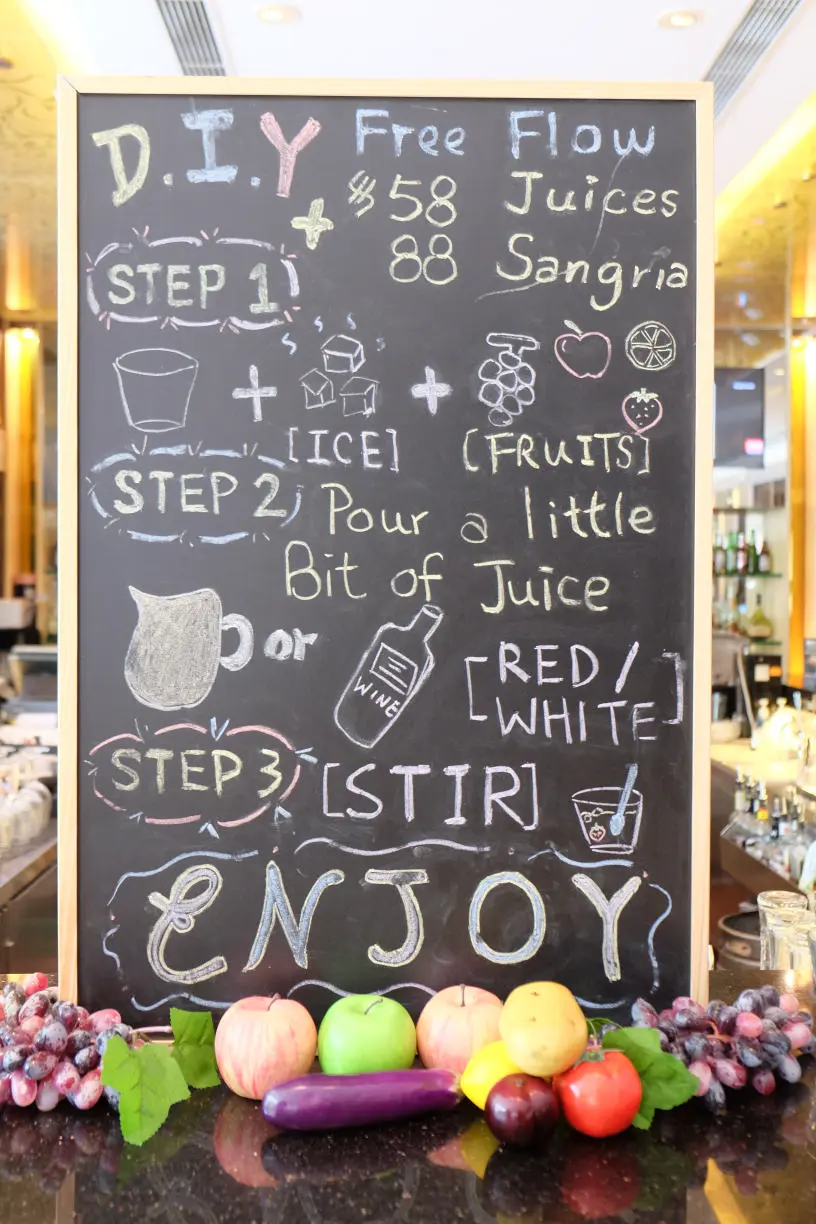 D.I.Y Free Flow
+ $58 Juices
88 Sangria
STEP 1
+ +
[ICE] [FRUITS]
STEP 2 Pour a little
Bit of Juice
or WINE [RED/
WHITE]
STEP 3 [STIR]
ENJOY